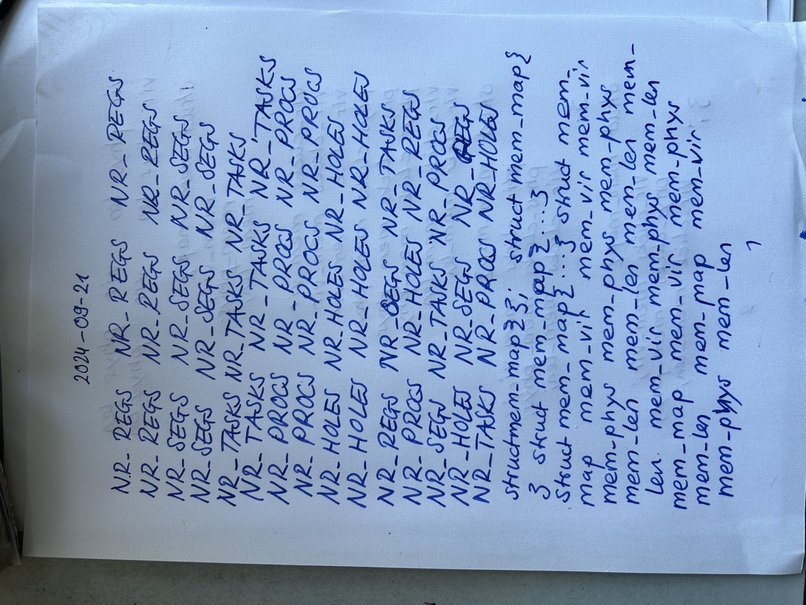 2024-09-21
NR_REGS NR_REGS NR_REGS
NR_REGS NR_REGS NR_REGS
NR_SEGS NR_SEGS NR_SEGS
NR_SEGS NR_SEGS NR_SEGS
NR_TASKS NR_TASKS NR_TASKS
NR_TASKS NR_TASKS NR_TASKS
NR_PROCS NR_PROCS NR_PROCS
NR_PROCS NR_PROCS NR_PROCS
NR_HOLES NR_HOLES NR_HOLES
NR_HOLES NR_HOLES NR_HOLES
NR_REGS NR_SEGS NR_TASKS
NR_PROCS NR_HOLES NR_REGS
NR_SEGS NR_TASKS NR_PROCS
NR_HOLES NR_SEGS NR_REGS
NR_TASKS NR_PROCS NR_HOLES
structmem_map{}; struct mem_map{
} struct mem_map{...}
struct mem_map{...} struct mem_
map mem_vir mem_vir mem_vir
mem_phys mem_phys mem_phys
mem_len mem_len mem_len mem_
len. mem_vir mem_phys mem_len
mem_map mem_vir mem_phys
mem_len mem_map mem_vir
mem_phys mem_len
1